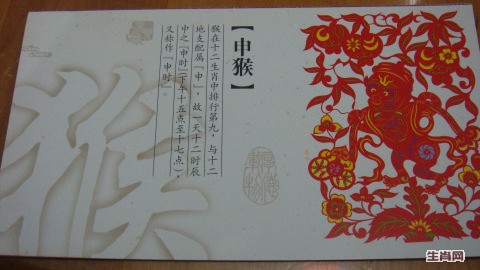 【申猴】
猴在十二生肖中排行第九，与十二
地支配属“申”，故一天十二时辰
中之“申时”（下午十五点至十七点），
又称作“申时”。
猴
生肖网